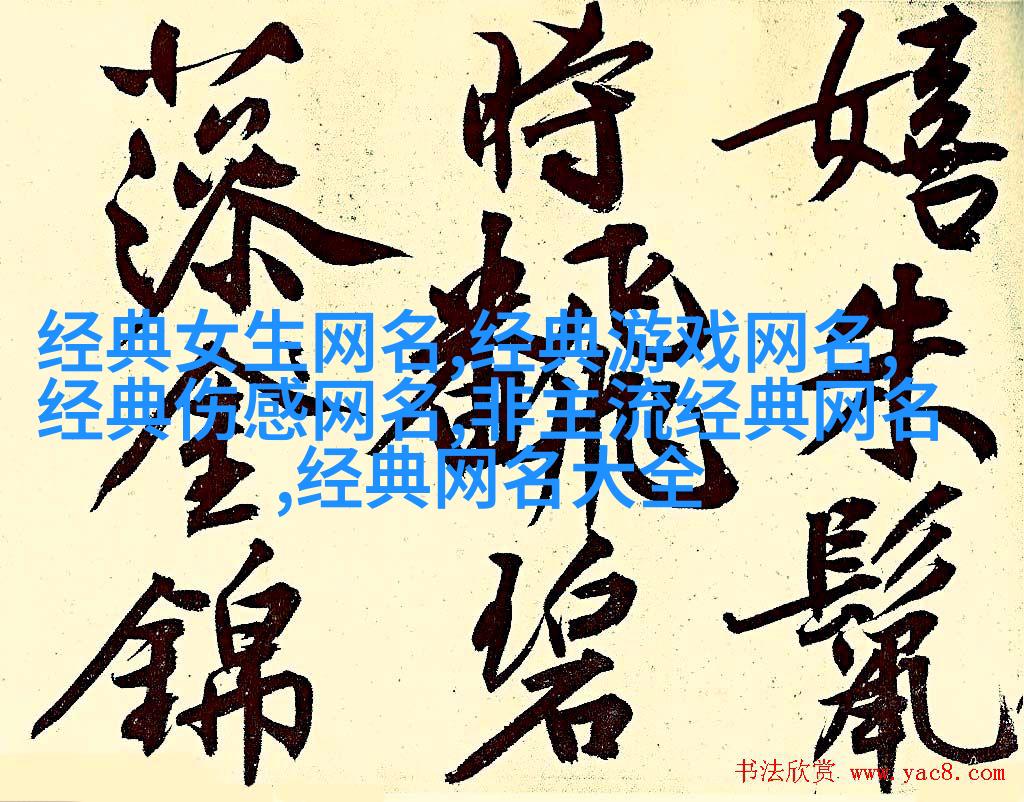 嬉朱鬣
時飜碧
藻金錦
经典女生网名,经典游戏网名,
经典伤感网名,非主流经典网名
,经典网名大全
书法欣赏 www.yac8.com